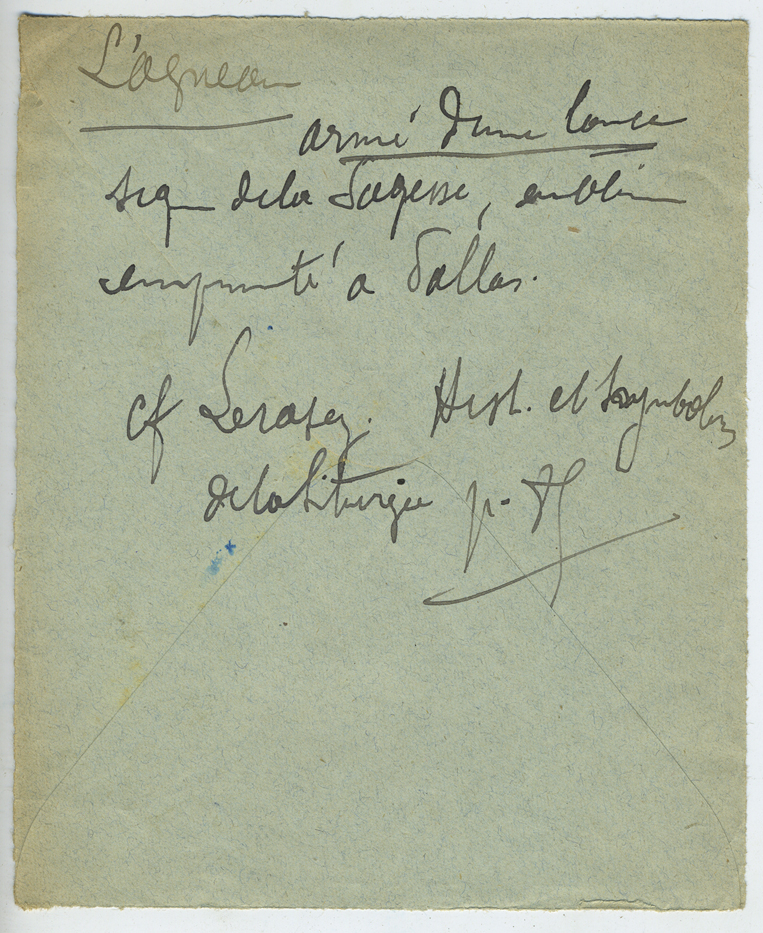 L'agneau
armé d'une lance
signe de la Sagesse, emblème
emprunté à Pallas.
cf Hist. et Symbolism
de la liturgie p.